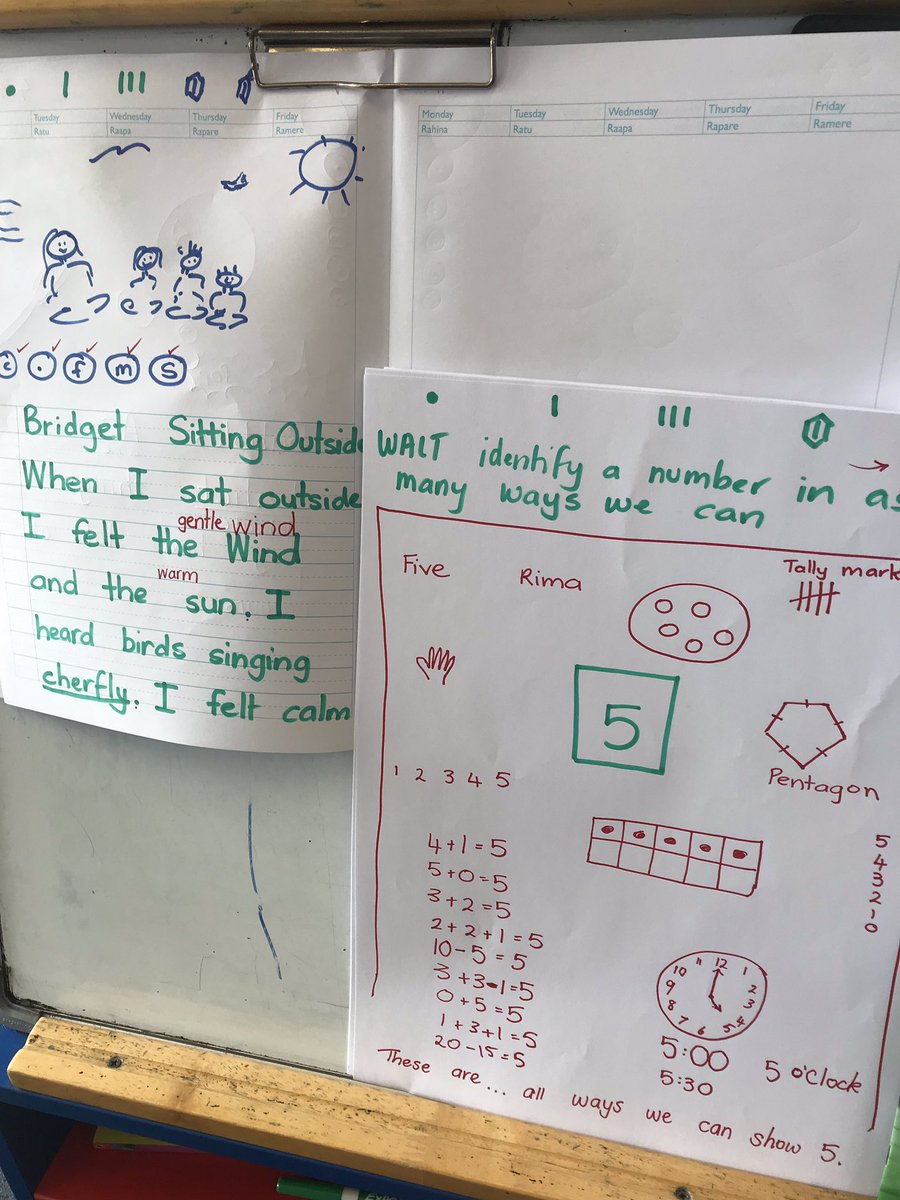 Tuesday Wednesday Thursday Friday
Ratu Raapa Rapare Ramere
c . f m s
Bridget Sitting Outside
When I sat outside
gentle wind
I felt the Wind
warm
and the sun. I
heard birds singing
cherfly. I felt calm
Monday Tuesday Wednesday Thursday Friday
Rahina Ratu Raapa Rapare Ramere
WALT identify a number in as
many ways we can
Five Rima Tally mark
5
Pentagon
1 2 3 4 5
5
4
3
2
1
0
4+1=5
5+0=5
3+2=5
2+2+1=5
10-5=5
3+3-1=5
0+5=5
1+3+1=5
20-15=5
11 12 1
10 2
9 3
8 4
7 6 5
5:00 5 o'clock
5:30
These are... all ways we can show 5.